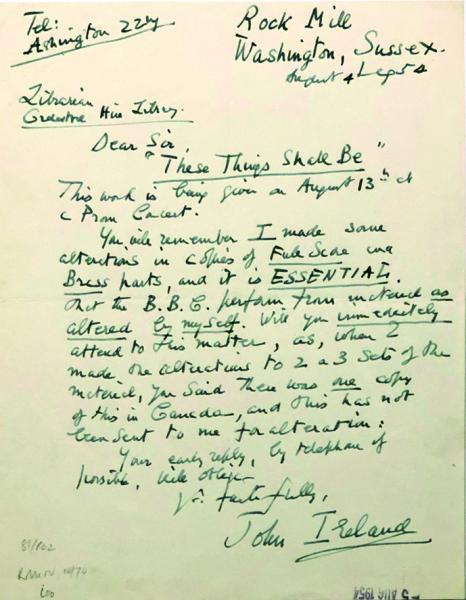 Tel:
Ashington 224
Rock Mill
Washington, Sussex.
August 4 1954
Librarian
Orchestral Hire Library.
Dear Sir,
"These Things Shall Be"
This work is being given on August 13th at
a Prom Concert.
You will remember I made some
alterations in copies of Full Score and
Brass parts, and it is ESSENTIAL
that the B.B.C. perform from material as
altered by myself. Will you immediately
attend to this matter, as, when I
made the alterations to 2 or 3 sets of the
material, you said there was one copy
of this in Canada, and this has not
been sent to me for alteration:
Your early reply, by telephone if
possible, will oblige
Yrs. faithfully,
John Ireland
5 AUG 1954